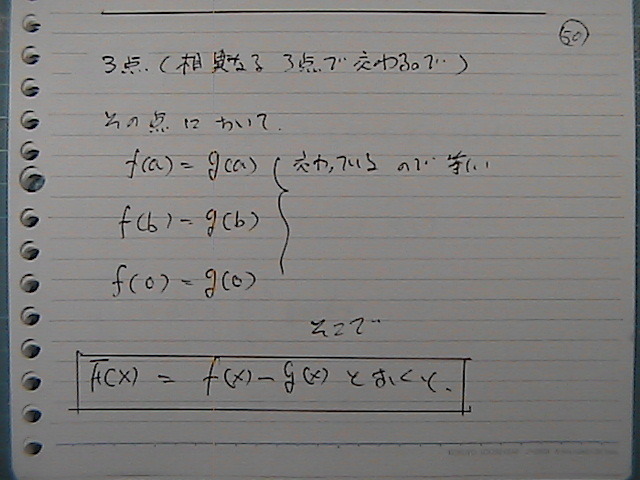 50
3点(相異なる3点で交わるので)
その点において.
f(a) = g(a) 交わっているので等しい
f(b) = g(b)
f(0) = g(0)
そこで
F(x) = f(x) - g(x) とおくと、